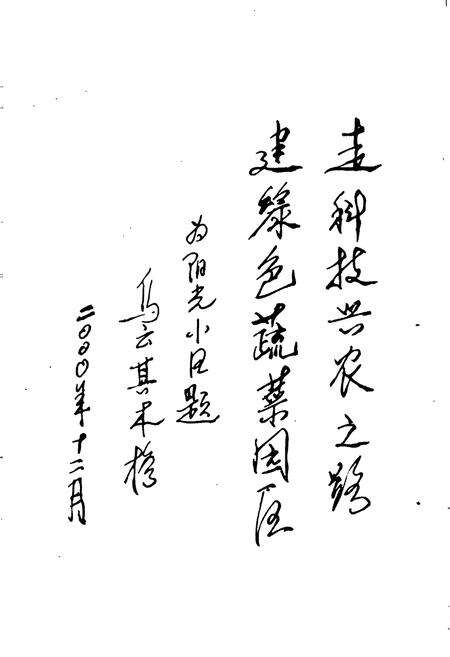 走科技兴农之路
建绿色蔬菜园区
为阳光小区题
乌云其木格
二〇〇〇年十二月